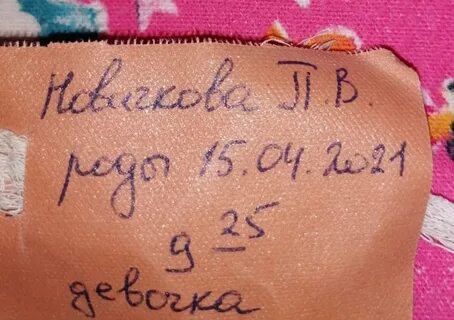 Новичкова П.В.
роды 15.04.2021
9 25
девочка